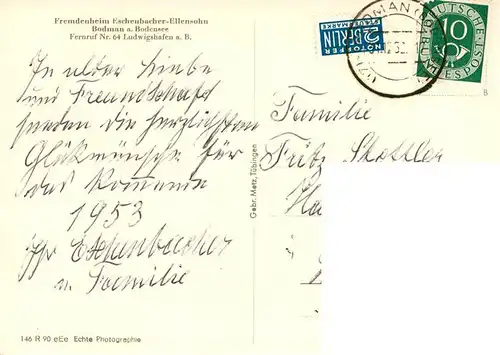 Fremdenheim Eschenbacher-Ellensohn
Bodman a. Bodensee
Fernruf Nr. 64 Ludwigshafen a. B.
In alter Liebe
und Freundschaft
senden die herzlichsten
Glückwünsche für
das kommende
1953
Ihr Eschenbacher
u. Familie
146 R 90 eEe Echte Photographie
Gebr. Metz, Tübingen
2 BERLIN
NOTOPFER
STEUERMARKE
BODMAN
10
DEUTSCHE BUNDESPOST
B
Familie
Fritz Skottler
Ha